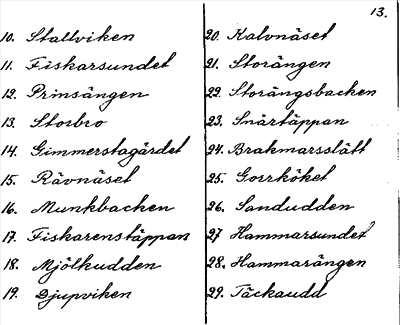 13.
10. Stallviken
11. Fiskarsundet
12. Prinsängen
13. Storbro
14. Gimmerstagärdet
15. Rävnäset
16. Munkbacken
17. Fiskarenstäppan
18. Mjölkudden
19. Djupviken
20. Kalvnäset
21. Storängen
22. Storängsbacken
23. Snårtäppan
24. Brakmarsslätt
25. Gorrköket
26. Sandudden
27 Hammarsundet
28. Hammarängen
29. Täckaudd